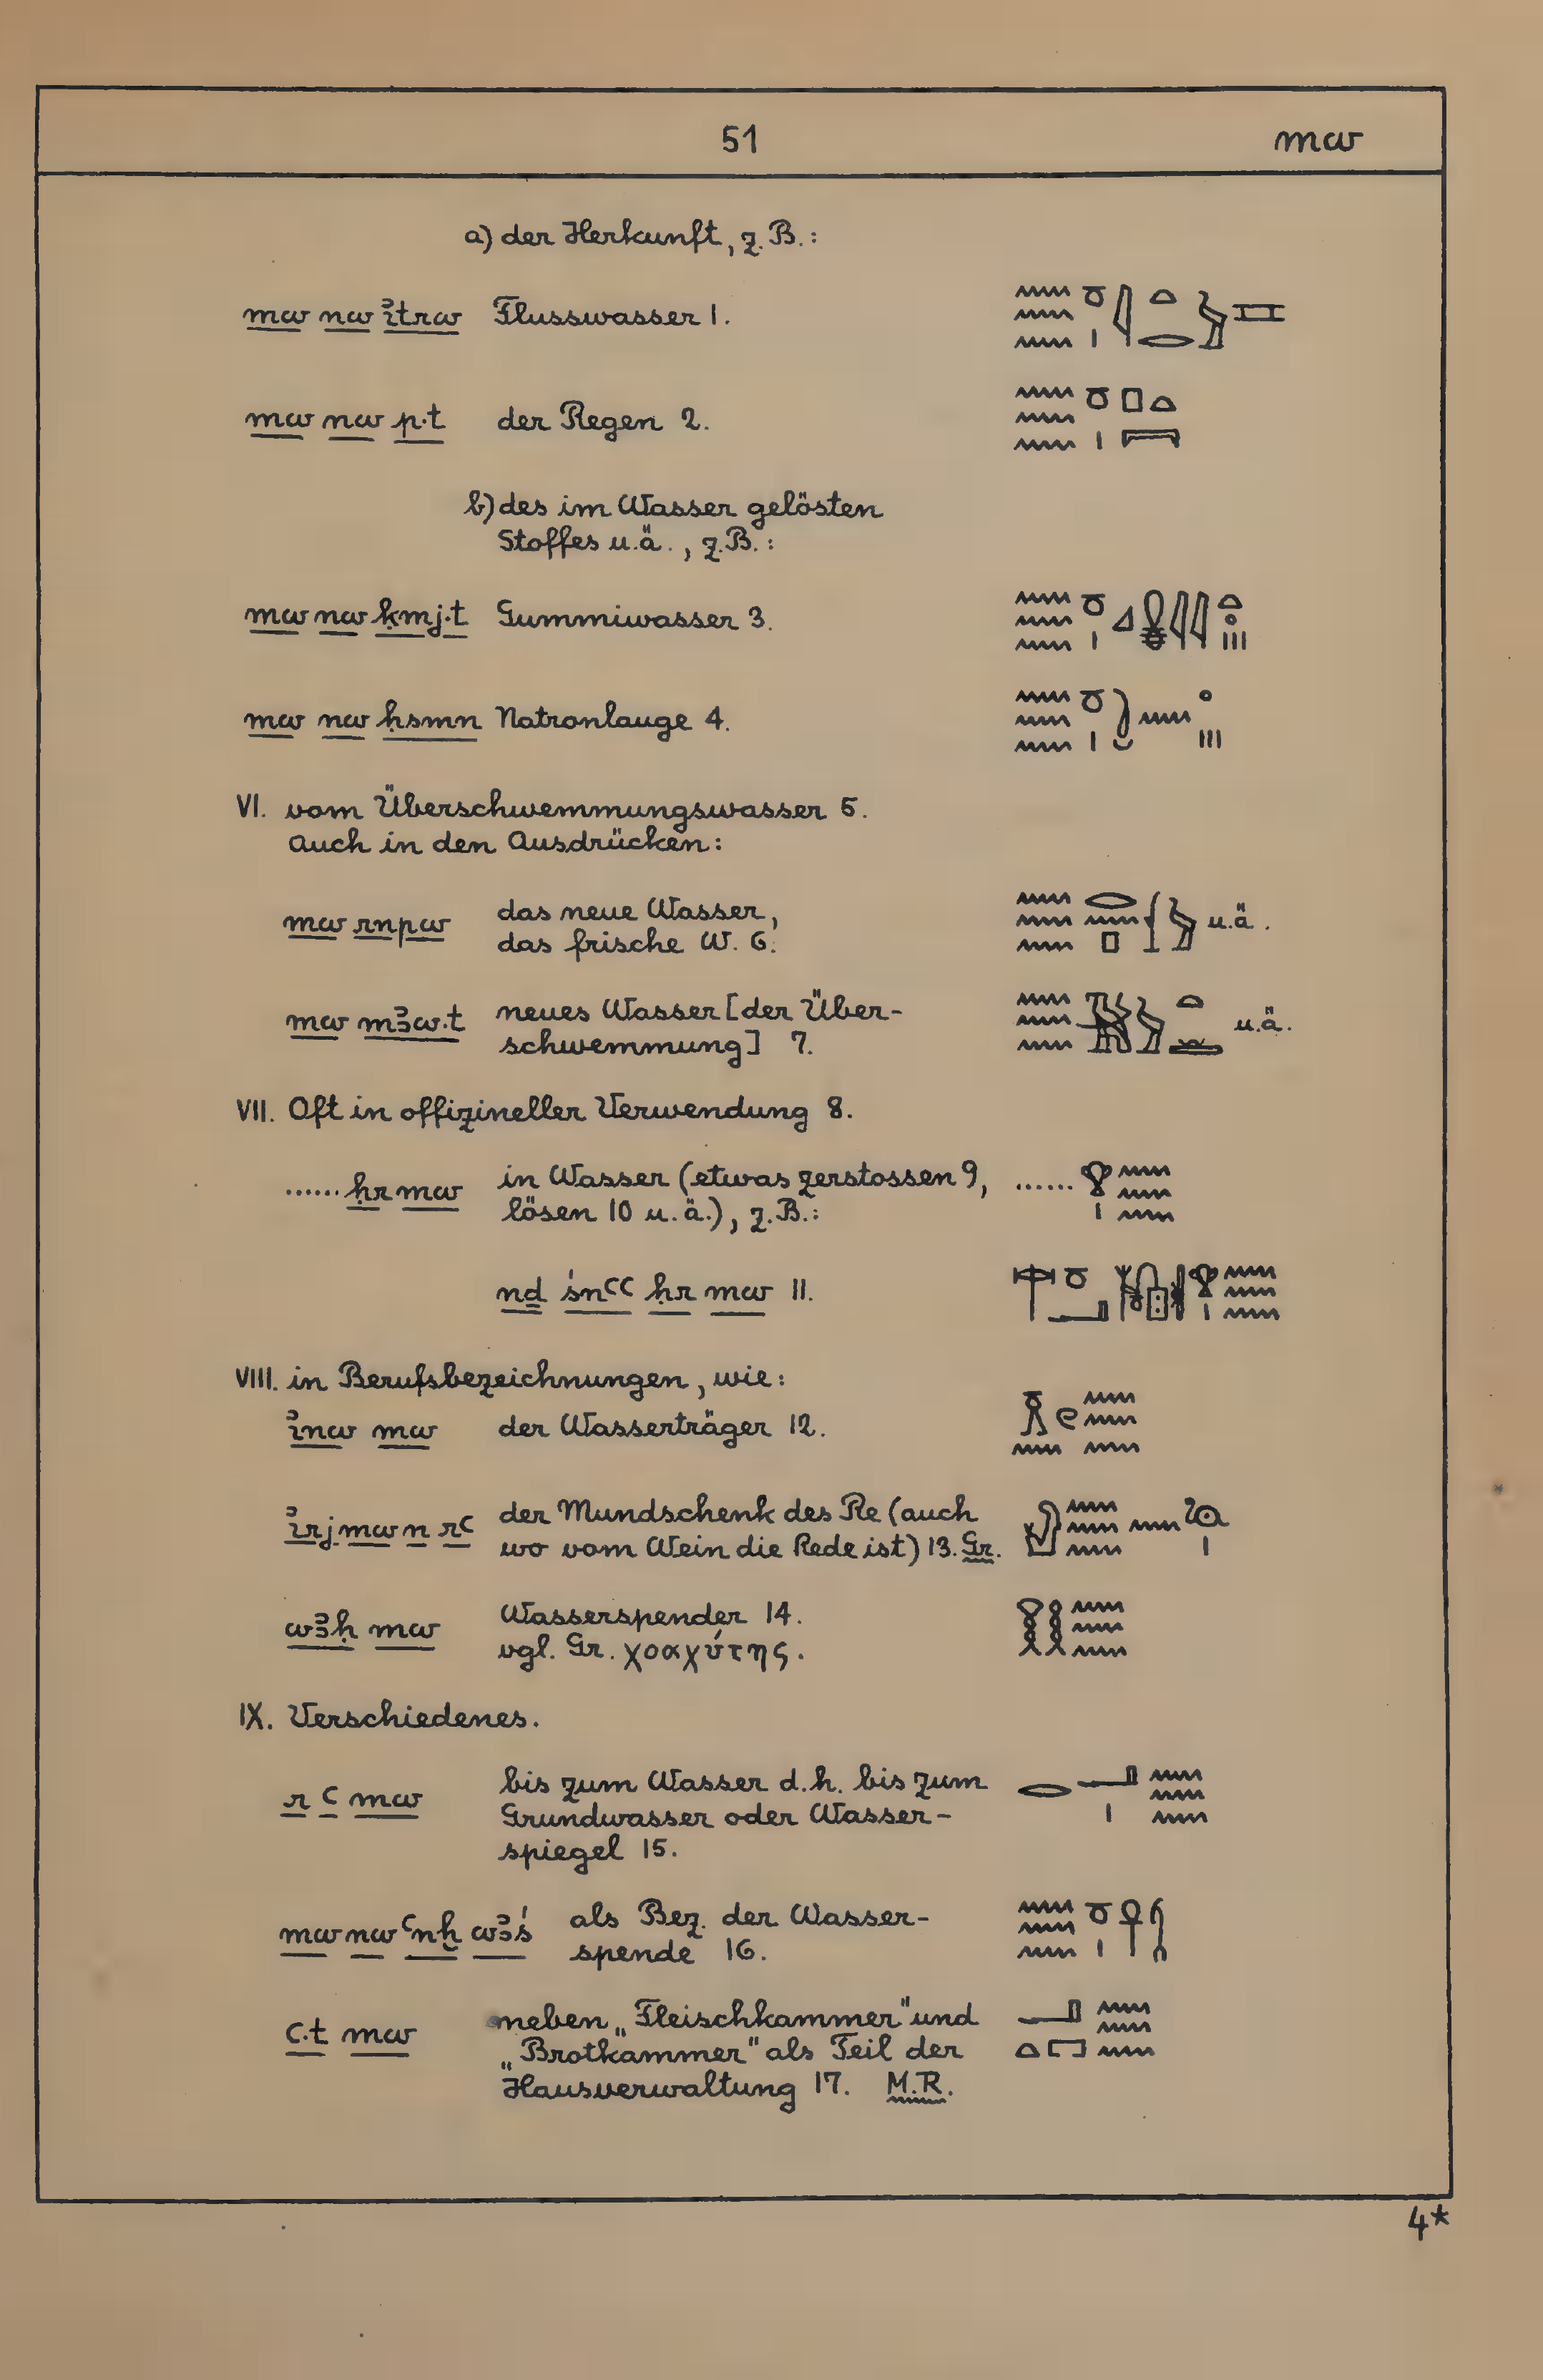 51 mw
a) der Herkunft, z.B.:
mw nw ꞽtrw Flusswasser 1.
mw nw p.t der Regen 2.
b) des im Wasser gelösten
Stoffes u.ä., z.B.:
mw nw ḳmj.t Gummiwasser 3.
mw nw ḥsmn Natronlauge 4.
VI. vom Überschwemmungswasser 5.
Auch in den Ausdrücken:
mw rnpw das neue Wasser,
das frische W. 6. u.ä.
mw mꜣw.t neues Wasser [der Über-
schwemmung] 7. u.ä.
VII. Oft in offizineller Verwendung 8.
......ḥr mw in Wasser (etwas zerstossen 9, ......
lösen 10 u.ä.), z.B.:
nḏ śnꜥꜥ ḥr mw 11.
VIII. in Berufsbezeichnungen, wie:
ꞽnw mw der Wasserträger 12.
ꞽrj mw n rꜥ der Mundschenk des Re (auch
wo vom Wein die Rede ist) 13. Gr.
wꜣḥ mw Wasserspender 14.
vgl. Gr. χοαχύτης.
IX. Verschiedenes.
r ꜥ mw bis zum Wasser d.h. bis zum
Grundwasser oder Wasser-
spiegel 15.
mw nw ꜥnḫ wꜣś als Bez. der Wasser-
spende 16.
ꜥ.t mw neben „Fleischkammer" und
„Brotkammer" als Teil der
Hausverwaltung 17. M.R.
4*